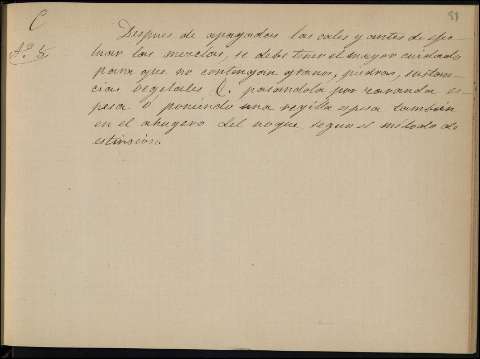 51
C
Despues de apagadas las cales y antes de efec-
tuar las mezclas, se debe tener el mayor cuidado
para que no contengan granos, piedras, sustan-
cias vegetales &. pasandola por zaranda es-
pesa o poniendo una regilla espesa tambien
en el ahugero del noque segun el método de
estincion.